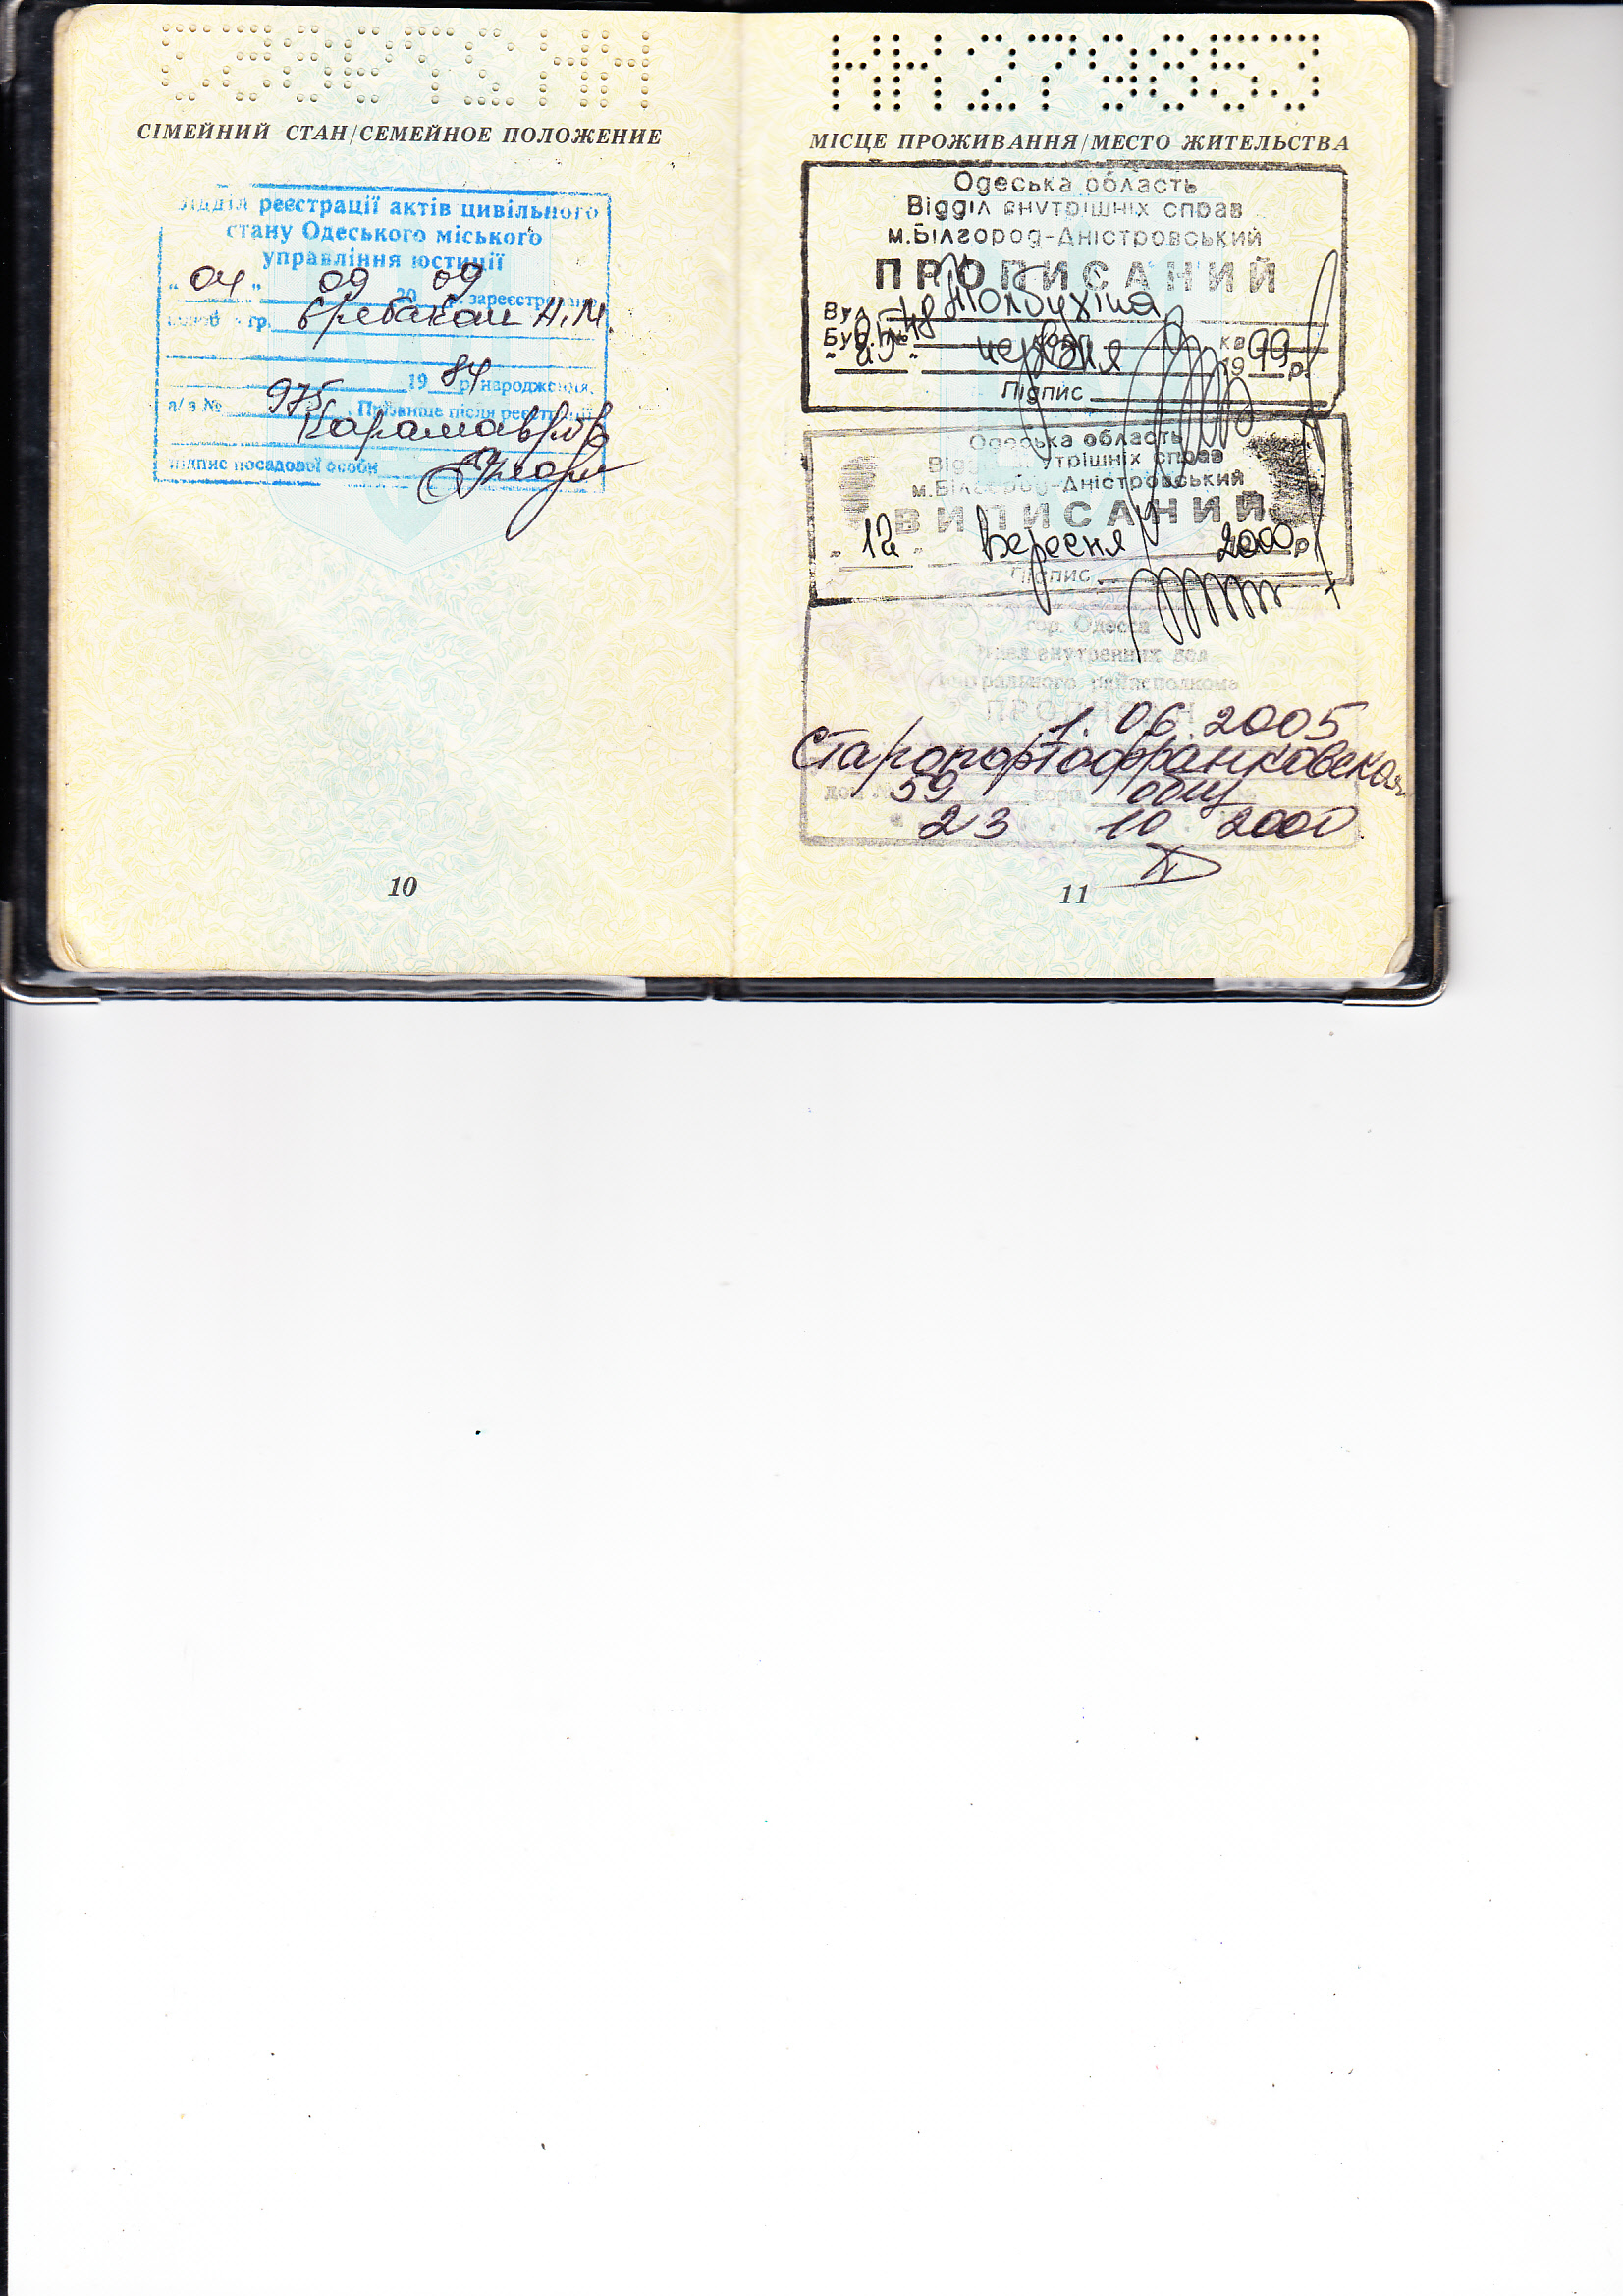 СІМЕЙНИЙ СТАН/СЕМЕЙНОЕ ПОЛОЖЕНИЕ
Відділ реєстрації актів цивільного
стану Одеського міського
управління юстиції
"04" 09 20 09 р. зареєстровано
шлюб з гр.
19 84 р. народження,
а/з № 975. Прізвище після реєстрації
підпис посадової особи
10
НН279653
МІСЦЕ ПРОЖИВАННЯ/МЕСТО ЖИТЕЛЬСТВА
Одеська область
Відділ внутрішніх справ
м.Білгород-Дністровський
ПРОПИСАНИЙ
Вул. Толбухіна
Буд. № кв
червня 19 99 р.
Підпис
Одеська область
Відділ внутрішніх справ
м.Білгород-Дністровський
ВИПИСАНИЙ
"12" вересня 2000р
Підпис
гор. Одесса
внутренних дел
Центрального райисполкома
ПРОПИСАН
1.06.2005
Старопортофранковская
дом № 59 корп. общ
23 10 2000
11